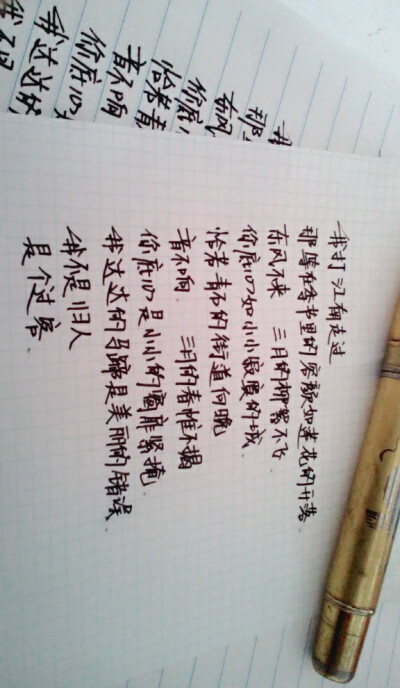 我打江南走过
那等在季书里的容颜如莲花的开落
东风不来 三月的柳絮不飞
你底心如小小寂寞的城
恰若青石的街道向晚
音不响 三月的春帷不揭
你底心是小小的窗扉紧掩
我达达的马蹄是美丽的错误
我不是归人
是个过客
那
东风
你底
恰若青
音不响
你底心
我达达的
我不